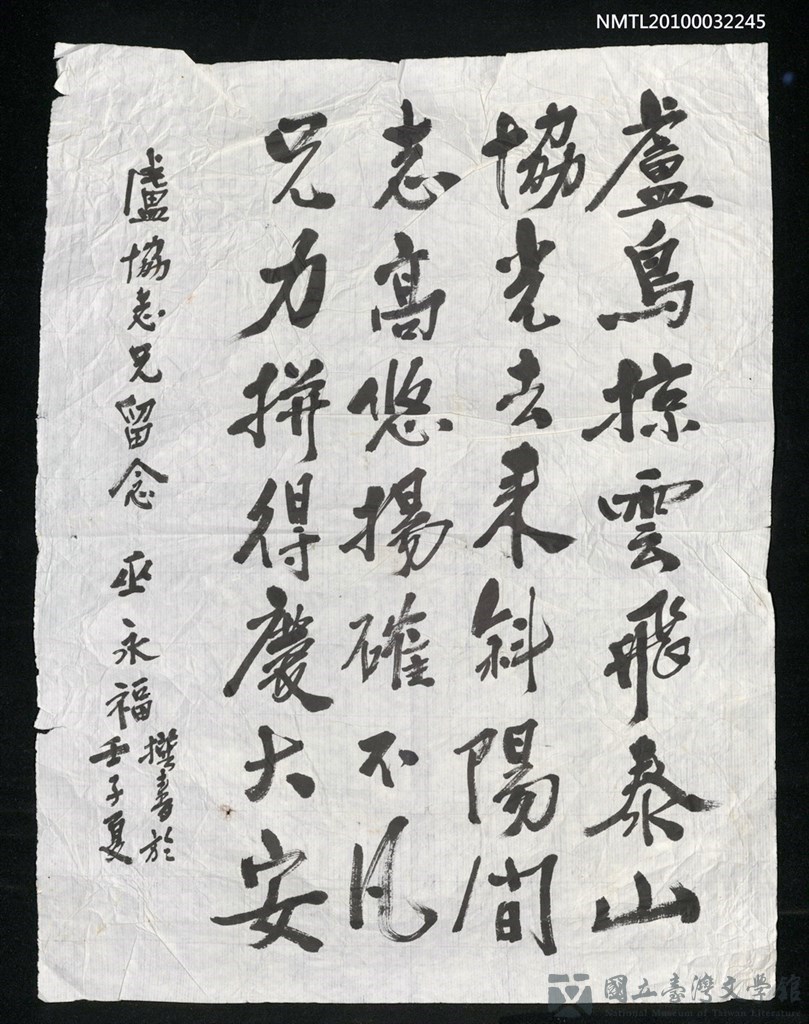 NMTL20100032245
盧鳥掠雲飛泰山
協光去來斜陽間
志高悠揚確不凡
兄力拼得慶大安
盧協志兄留念 巫永福
撰書於
壬子夏
國立臺灣文學館
National Museum of Taiwan Literature